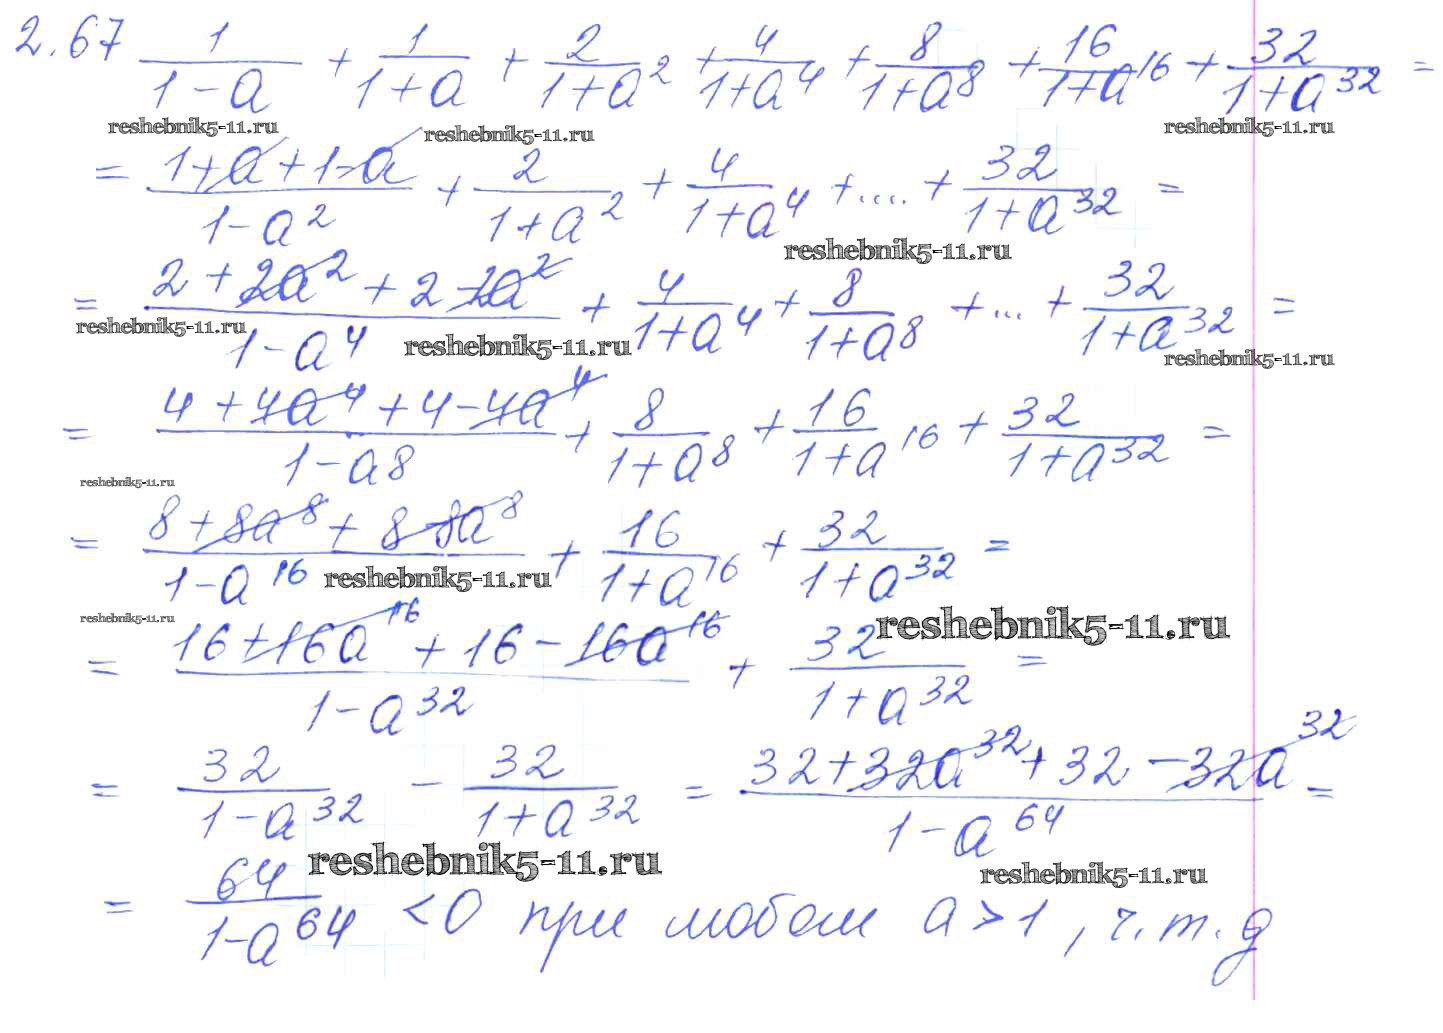 2.67 1/(1-a) + 1/(1+a) + 2/(1+a²) + 4/(1+a⁴) + 8/(1+a⁸) + 16/(1+a¹⁶) + 32/(1+a³²) =
reshebnik5-11.ru reshebnik5-11.ru reshebnik5-11.ru
= (1+a+1-a)/(1-a²) + 2/(1+a²) + 4/(1+a⁴) + .... + 32/(1+a³²) =
reshebnik5-11.ru
= (2+2a²+2-2a²)/(1-a⁴) + 4/(1+a⁴) + 8/(1+a⁸) + ... + 32/(1+a³²) =
reshebnik5-11.ru reshebnik5-11.ru reshebnik5-11.ru
= (4+4a⁴+4-4a⁴)/(1-a⁸) + 8/(1+a⁸) + 16/(1+a¹⁶) + 32/(1+a³²) =
reshebnik5-11.ru
= (8+8a⁸+8-8a⁸)/(1-a¹⁶) + 16/(1+a¹⁶) + 32/(1+a³²) =
reshebnik5-11.ru
reshebnik5-11.ru reshebnik5-11.ru
= (16+16a¹⁶+16-16a¹⁶)/(1-a³²) + 32/(1+a³²) =
= 32/(1-a³²) - 32/(1+a³²) = (32+32a³²+32-32a³²)/(1-a⁶⁴) =
reshebnik5-11.ru reshebnik5-11.ru
= 64/(1-a⁶⁴) <0 при любом a>1, ч.т.д